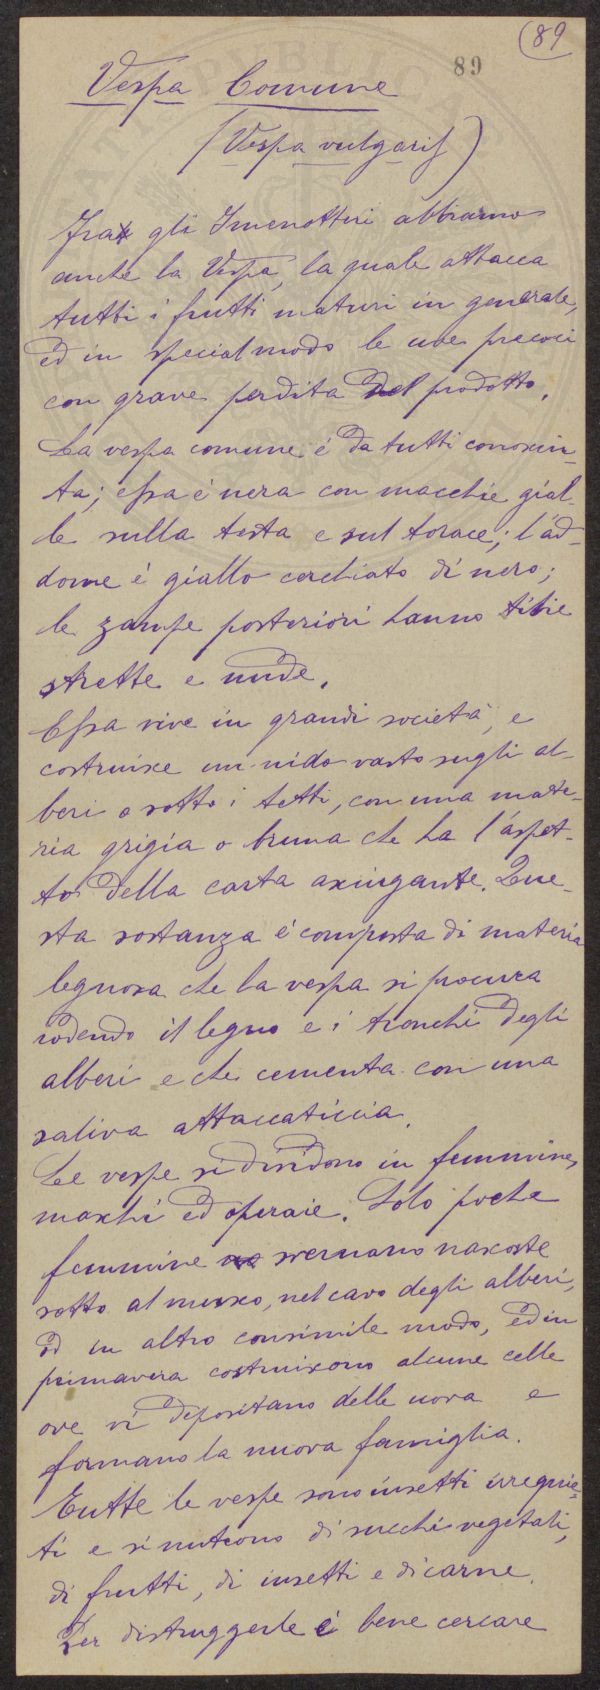 (89
89
Vespa Comune
(Vespa vulgaris)
Fra gli Imenotteri abbiamo
anche la Vespa, la quale attacca
tutti i frutti maturi in generale,
ed in special modo le uve precoci
con grave perdita del prodotto.
La vespa comune è da tutti conosciu-
ta; essa è nera con macchie gial-
le sulla testa e sul torace; l'ad-
dome è giallo cerchiato di nero;
le zampe posteriori hanno tibie
strette e nude.
Essa vive in grandi società, e
costruisce un nido vasto sugli al-
beri o sotto i tetti, con una mate-
ria grigia o bruna che ha l'aspet-
to della carta asciugante. Que-
sta sostanza è composta di materia
legnosa che la vespa si procura
rodendo il legno e i tronchi degli
alberi e che cementa con una
saliva attaccaticcia.
Le vespe si dividono in femmine,
maschi ed operaie. Solo poche
femmine svernano nascoste
sotto al musco, nel cavo degli alberi,
od in altro consimile modo, ed in
primavera costruiscono alcune celle
ove vi depositano delle uova e
formano la nuova famiglia.
Tutte le vespe sono insetti irrequie-
ti e si nutrono di succhi vegetali,
di frutti, di insetti e di carne.
Per distruggerle è bene cercare